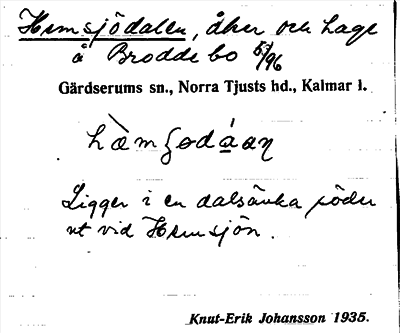 Hemsjödalen, åker och hage
å Broddebo 53/96
Gärdserums sn., Norra Tjusts hd., Kalmar l.
Ligger i en dalsänka söder
ut vid Hemsjön.
Knut-Erik Johansson 1935.